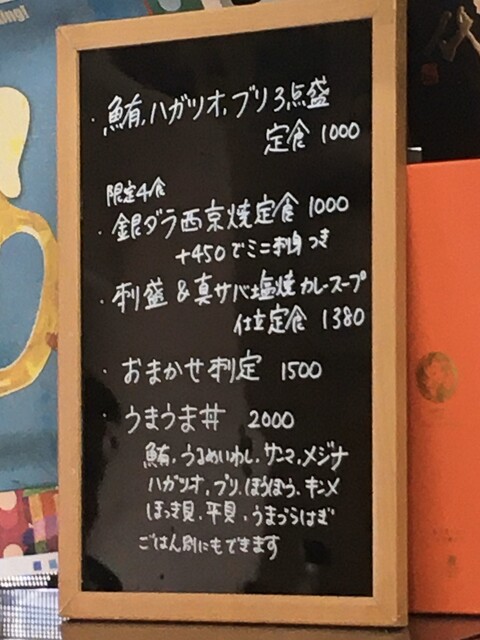 ・鮪、ハガツオ、ブリ3点盛
定食 1000
限定4食
・銀ダラ西京焼定食 1000
+450でミニ刺身つき
・刺盛&真サバ塩焼カレースープ
仕立定食 1380
・おまかせ刺定 1500
・うまうま丼 2000
鮪、うるめいわし、サンマ、メジナ
ハガツオ、ブリ、ほうぼう、キンメ
ほっき貝、平貝、うまづらはぎ
ごはん別にもできます